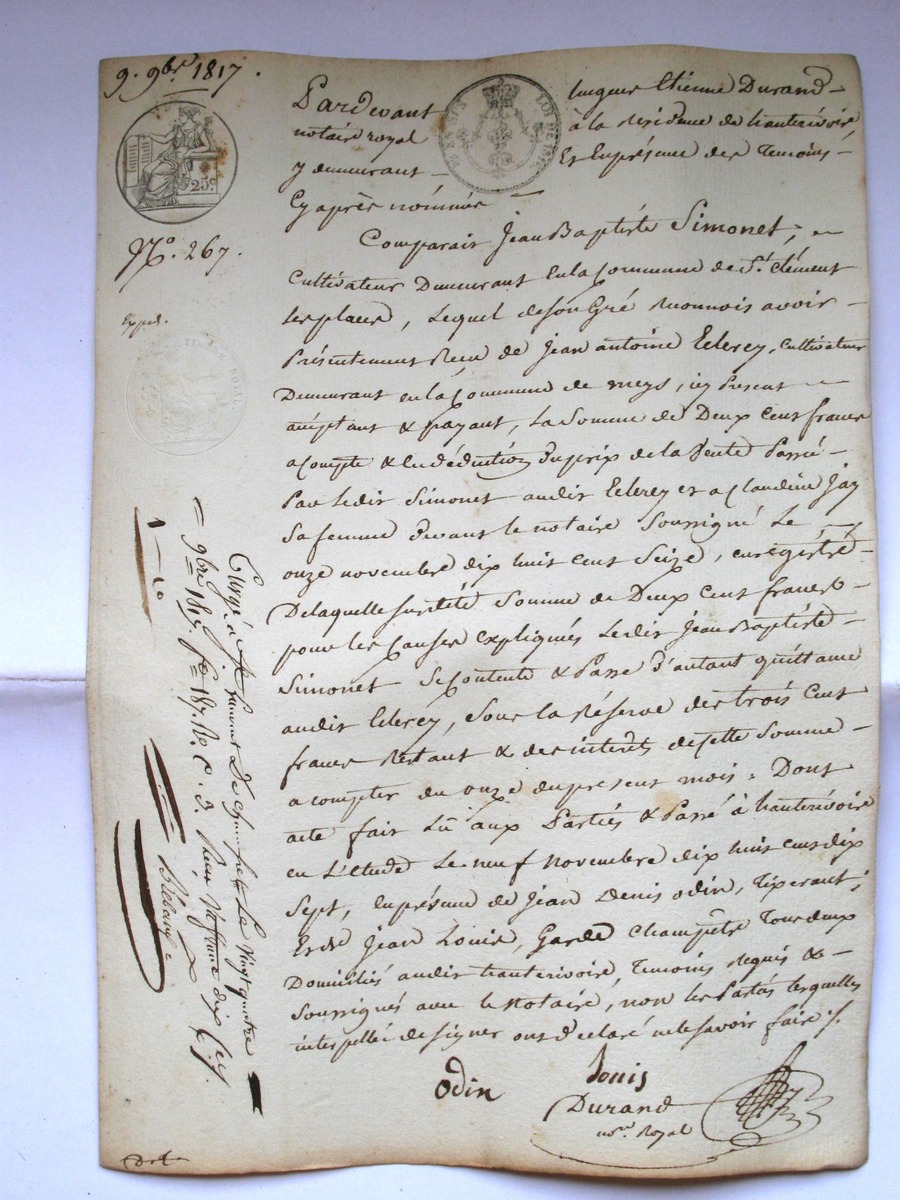 9. 9bre 1817.
Pardevant hugues Etienne Durand
notaire royal à la Residence de hauterivoire
y demeurant Et En présence des Temoins
Cy après nommés
25c
LOI DE 1816
N.° 267.
Comparait Jean Baptiste Simonet,
Cultivateur Demeurant En la Commune de St. Clément
les places, Lequel de son Gré reconnois avoir
Présentement Reçu de Jean antoine Eclerey, Cultivateur
Exped.
TIMBRE ROYAL
Demeurant en la Commune de meys, icy Present
acceptant & payant, La Somme de Deux Cent francs
acompte & En dédéuction Du prix de la Vente Passée
Par Ledit Simonet audit Eclerey et a Claudine Jay
Sa femme Devant le notaire Soussigné Le
onze novembre dix huit cent Seize, enregistré
De laquelle susditte Somme de Deux Cent francs
pour les Causes Expliquées Ledit Jean Baptiste
Simonet Se Contente & Passe D'autant quittance
audit Eclerey, Sous la Réserve des trois Cent
francs Restant & des interets de cette Somme
a compter du onze du present mois. Dont
acte fait Lû aux Parties & Passé à hauterivoire
en L'étude Le neuf Novembre dix huit cent dix
Sept, En présence de Jean Denis odin, Tixerant,
Et de Jean Louis, Garde Champêtre Tous deux
Domiciliés audit hauterivoire, Temoins Requis &
Soussignés avec le Notaire, non les Parties lesquelles
interpellée de signer ont declaré ne le savoir faire ./.
Odin Louis
Durand
nore. Royal
Le Vingt quatre
9bre 1817. fo 187. Ro C. 3. Reçu